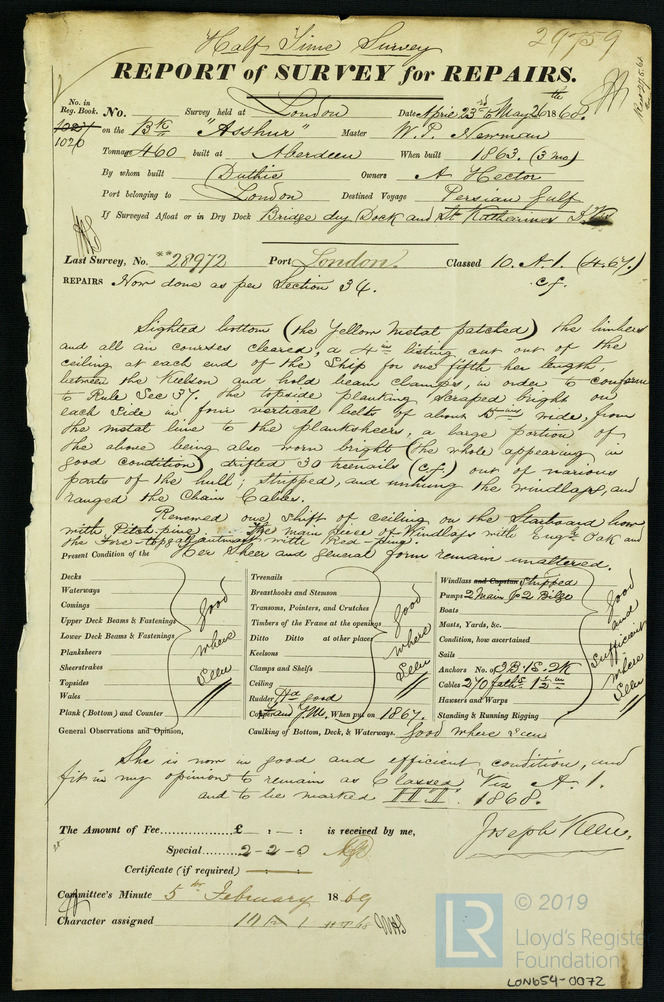 Half Time Survey
29759
REPORT of SURVEY for REPAIRS.
No. in Reg. Book. No. Survey held at London Date April 23rd to May 26th 1868.
1027
1020 on the Bk "Asshur" Master W. P. Newman
Tonnage 460 built at Aberdeen When built 1863. (3 mo)
By whom built Duthie Owners A Hector
Port belonging to London Destined Voyage Persian Gulf
If Surveyed Afloat or in Dry Dock Bridge dry Dock and St Katharines
Last Survey, No. **28972 Port London. Classed 10. A. 1. (4.67.)
c.f.
REPAIRS Now done as per Section 34.
Sighted bottom (the Yellow Metal patched) the limbers
and all air courses cleared, a 4 in listing cut out of the
ceiling at each end of the Ship for one fifth her length,
between the Keelson and hold beam clamps, in order to conform
to Rule Sec 37. The topside planking scraped bright on
each side in four vertical belts of about 5 ins wide, from
the metal line to the planksheers, a large portion of
the above being also worn bright (the whole appearing in
good condition) drifted 30 treenails (c.f.) out of various
parts of the hull, stripped, and unhung the windlass, and
ranged the Chain Cables.
Renewed one shift of ceiling on the Starboard bow
with Pitch pine, The main piece of Windlass with Engs. Oak and
the Fore-topgallantmast with Red-pine.
Present Condition of the Her Sheer and general form remain unaltered.
Decks
Waterways
Comings
Upper Deck Beams & Fastenings
Lower Deck Beams & Fastenings
Planksheers
Sheerstrakes
Topsides
Wales
Plank (Bottom) and Counter
Good where seen
Treenails
Breasthooks and Stemson
Transoms, Pointers, and Crutches
Timbers of the Frame at the openings
Ditto Ditto at other places
Keelsons
Clamps and Shelfs
Ceiling
Good where seen
Rudder good
Y.M. When put on 1867.
Windlass and Capstan Stripped
Pumps 2 Main & 2 Bilge
Boats
Masts, Yards, &c.
Condition, how ascertained
Sails
Anchors No. of 2B. 1S. 2K
Cables 270 faths 1 1/2 in
Hawsers and Warps
Standing & Running Rigging
Good and Sufficient where seen
General Observations and Opinion, Caulking of Bottom, Deck, & Waterways. Good where seen
She is now in good and efficient condition, and
fit in my opinion to remain as Classed Viz A. 1.
and to be marked H.T. 1868.
The Amount of Fee £ : - : is received by me, Joseph Keen,
Special 2-2-0
Certificate (if required)
Committee's Minute 5th February 1869
Character assigned 10 A 1 HT 68
LR
© 2019
Lloyd's Register
Foundation
LON654-0072